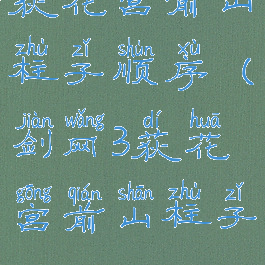 荻花宫前山
zhù zǐ shùn xù
柱子顺序(
jiàn wǎng dí huā
剑网3荻花
gōng qián shān zhù zǐ
宫前山柱子